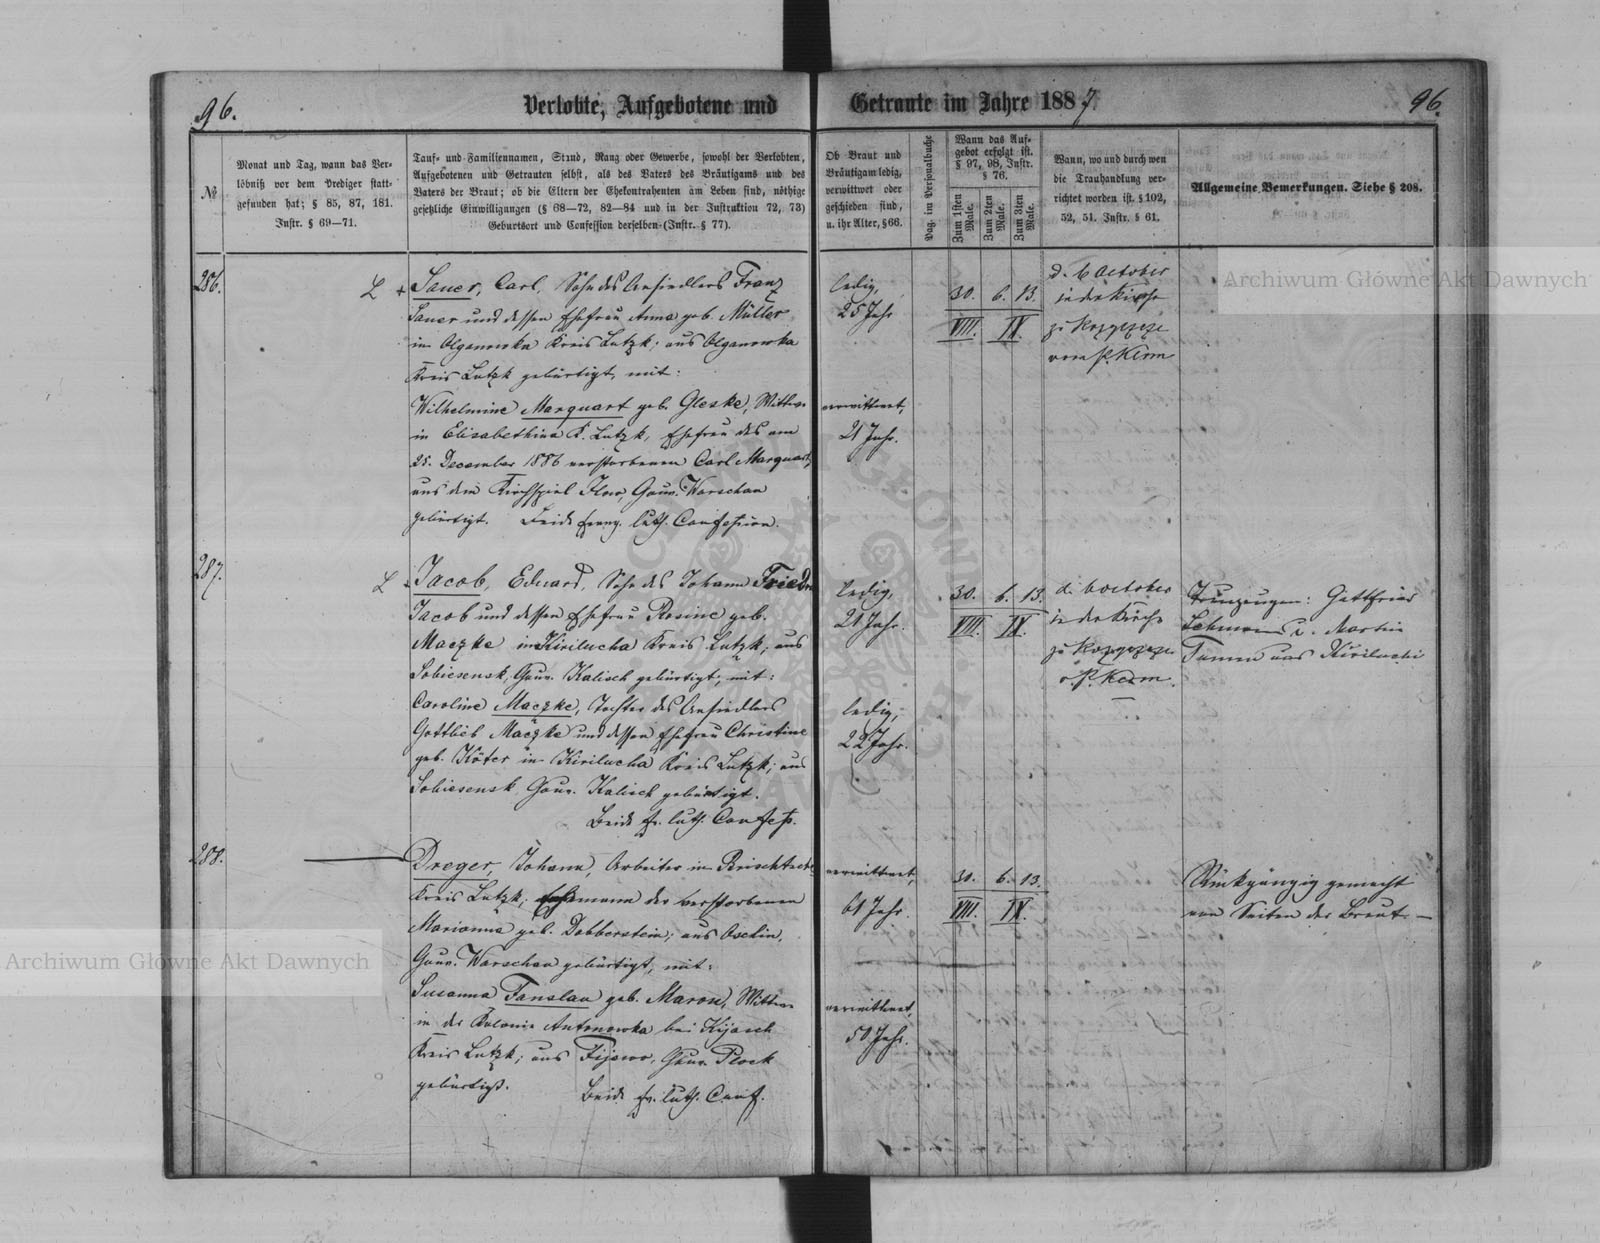 96.
Verlobte, Aufgebotene und
Getraute im Jahre 1887.
96.
№
Monat und Tag, wann das Ver-
löbniß vor dem Prediger statt-
gefunden hat; § 85, 87, 181.
Instr. § 69—71.
Tauf- und Familiennamen, Stand, Rang oder Gewerbe, sowohl der Verlobten,
Aufgebotenen und Getrauten selbst, als des Vaters des Bräutigams und des
Vaters der Braut; ob die Eltern der Ehekontrahenten am Leben sind, nöthige
gesetzliche Einwilligungen (§ 68—72, 82—84 und in der Instruktion 72, 73)
Geburtsort und Confession derselben (Instr. § 77).
Ob Braut und
Bräutigam ledig,
verwittwet oder
geschieden sind,
u. ihr Alter, § 66.
Pag. im Personalbuche
Wann das Auf-
gebot erfolgt ist.
§ 97, 98, Instr.
§ 76.
Zum 1sten Male.
Zum 2ten Male.
Zum 3ten Male.
Wann, wo und durch wen
die Trauhandlung ver-
richtet worden ist. § 102,
52, 51. Instr. § 61.
Allgemeine Bemerkungen. Siehe § 208.
286.
Sauer, Carl, Sohn des Ansiedlers Franz
Sauer und dessen Ehefrau Anna geb. Müller
in Olganowka Kreis Lutzk; aus Olganowka
Kreis Lutzk gebürtigt, mit:
Wilhelmine Marquart geb. Gleske, Wittwe
in Elisabethina K. Lutzk, Ehefrau des am
25. December 1886 verstorbenen Carl Marquart,
aus dem Kirchspiel Ilow, Gouv. Warschau
gebürtigt. Beide evang. luth. Confession.
ledig,
25 Jahr
verwittwet,
21 Jahr.
30. 6. 13.
VIII. IX.
d. 6 October
in der Kirche
zu
von P. Kerm
287.
Jacob, Eduard, Sohn des Johann Friedr.
Jacob und dessen Ehefrau Rosine geb.
Maczke in Kirilucha Kreis Lutzk; aus
Sobiesensk, Gouv. Kalisch gebürtigt, mit:
Caroline Maczke, Tochter des Ansiedlers
Gottlieb Maczke und dessen Ehefrau Christine
geb. Köter in Kirilucha Kreis Lutzk; aus
Sobiesensk, Gouv. Kalisch gebürtigt.
Beide ev. luth. Confess.
ledig,
21 Jahr.
ledig,
22 Jahr.
30. 6. 13.
VIII. IX.
d. 6 October
in der Kirche
zu
v. P. Kerm.
Trauzeugen: Gottfried
u. Martin
aus
288.
Dreger, Johann, Arbeiter in
Kreis Lutzk; Ehemann der verstorbenen
Marianna geb. Dobberstein; aus Oselin,
Gouv. Warschau gebürtigt, mit:
Susanna Fanslau geb. Maron, Wittwe
in der Kolonie Antonowka bei Kijasch
Kreis Lutzk; aus Fijewo, Gouv. Plock
gebürtigt. Beide ev. luth. Conf.
verwittwet,
61 Jahr.
verwittwet,
50 Jahr.
30. 6. 13.
VIII. IX.
Rückgängig gemacht
von Seiten der Braut. —
Archiwum Główne Akt Dawnych
Archiwum Główne Akt Dawnych